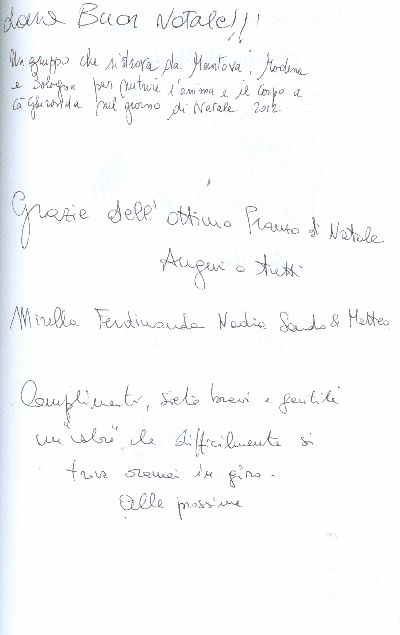 Buon Natale!!!
Un gruppo che si trova da Mantova, Modena
e Bologna per nutrire l'anima e il corpo a
Cà Ghironda nel giorno di Natale 2012
Grazie dell' ottimo Pranzo di Natale
Auguri a tutti
Mirella Ferdinanda Nadia Sando & Matteo
Complimenti, siete bravi e gentili
un "che difficilmente si
trova oramai in giro.
Alla prossima